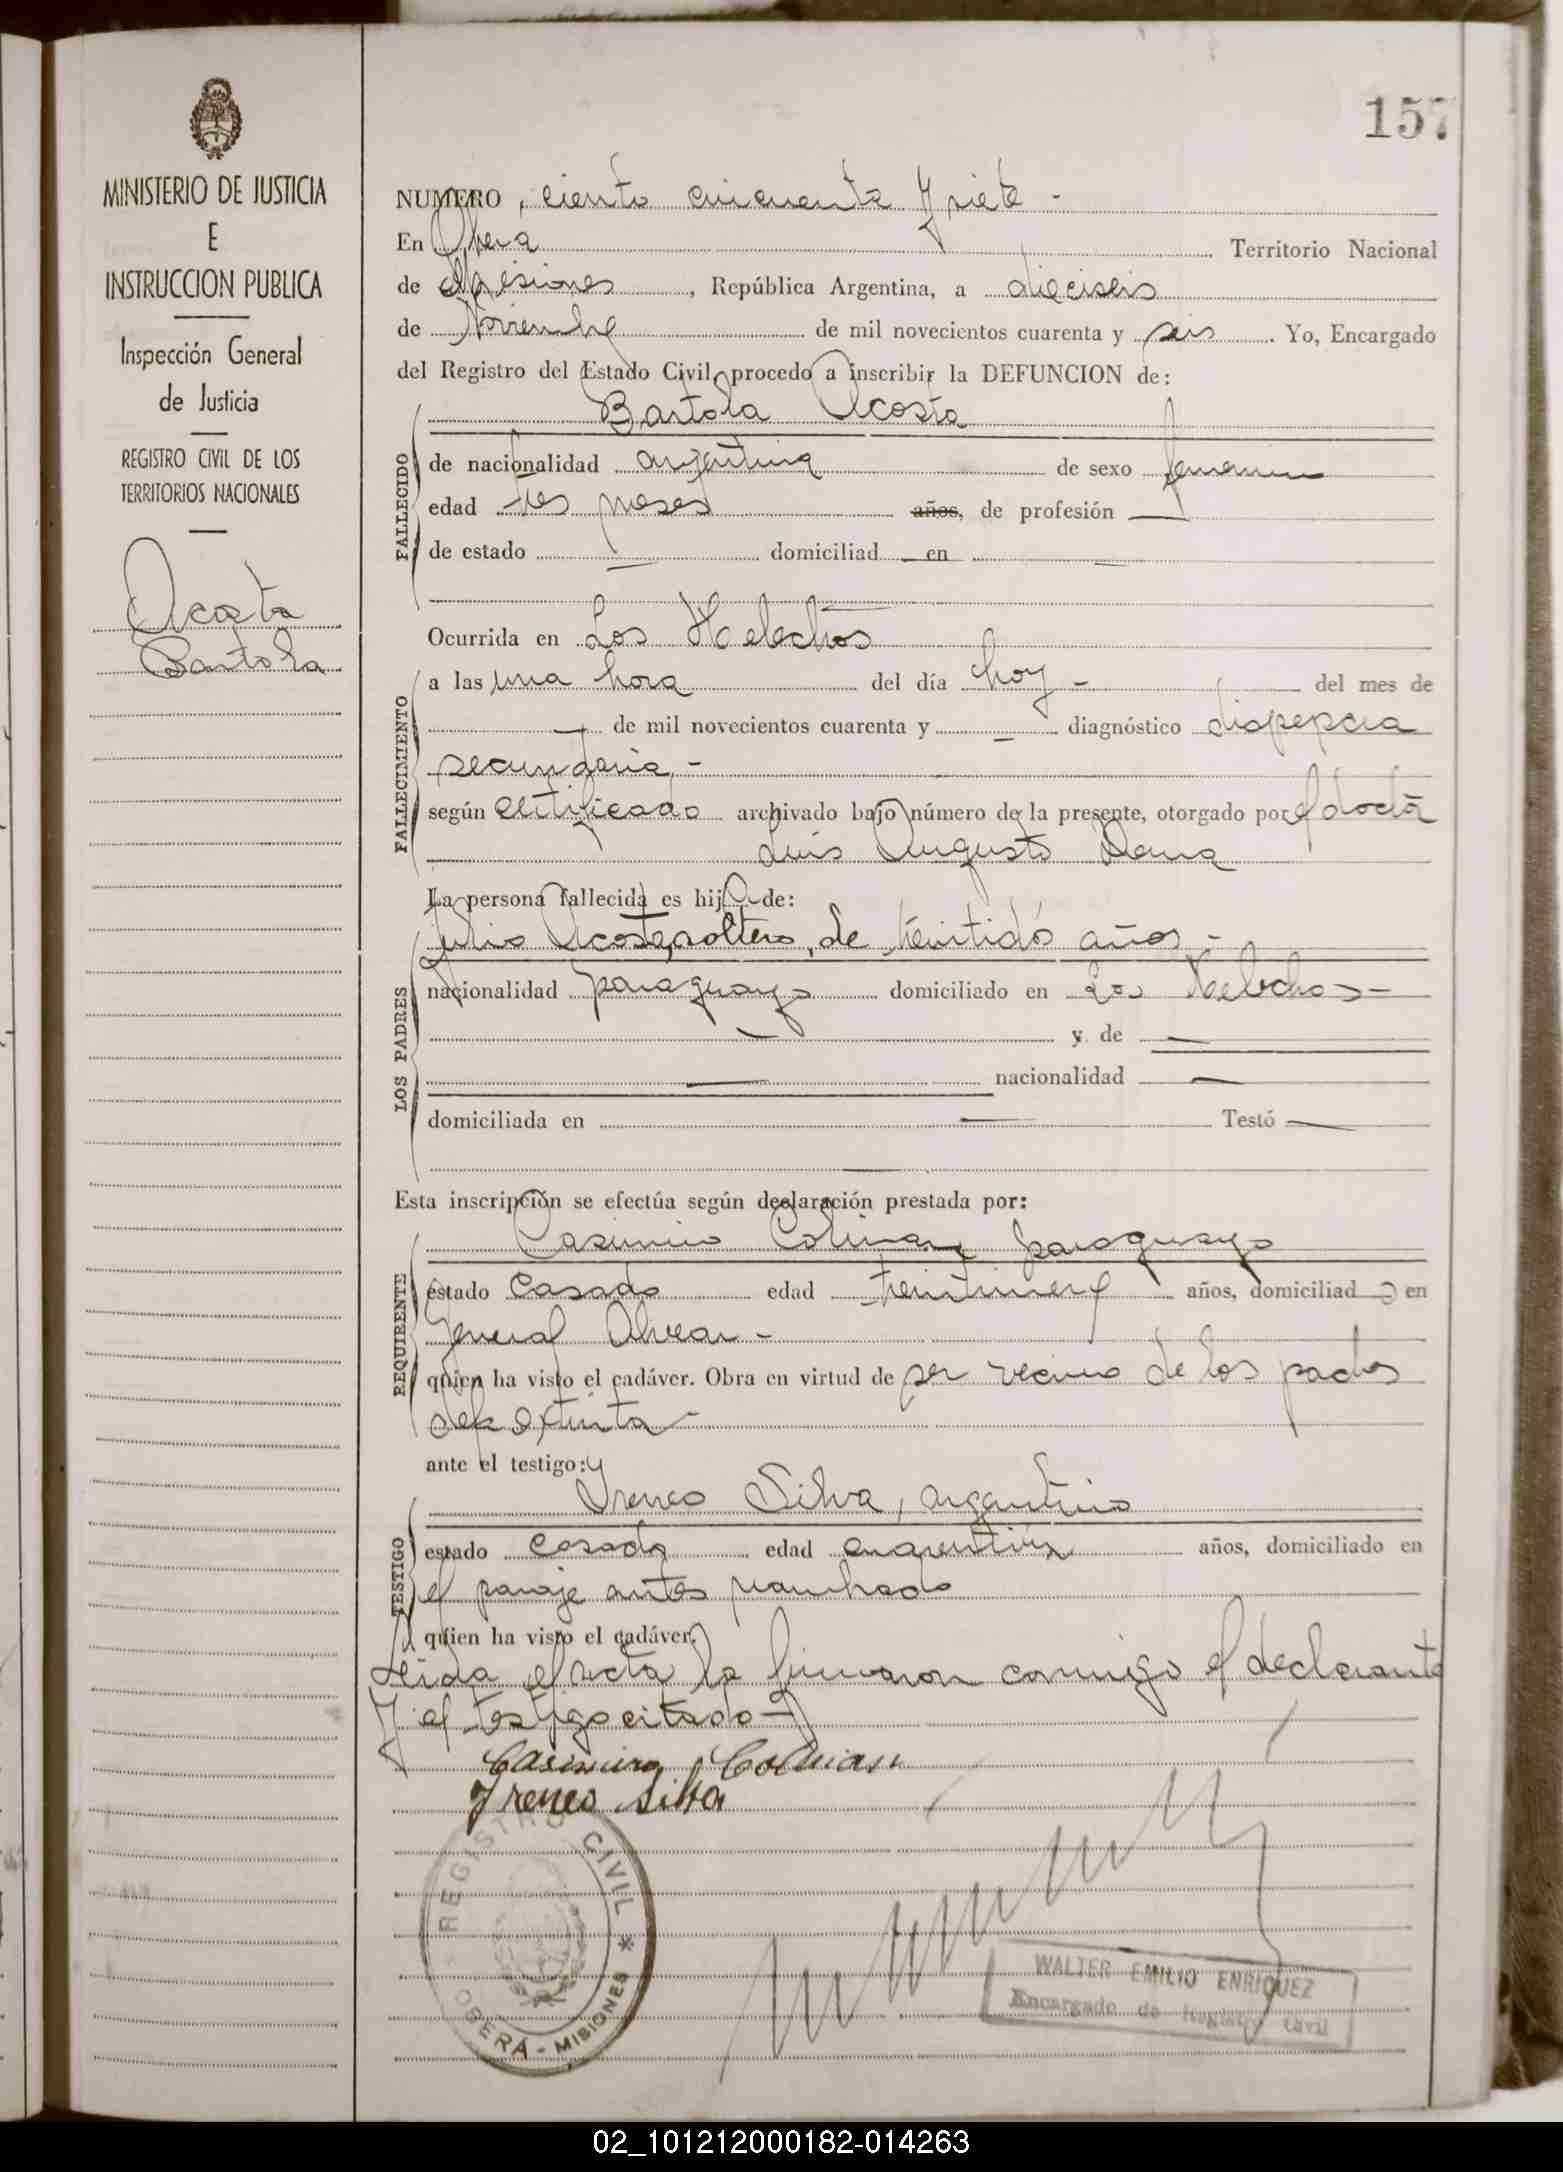 157
MINISTERIO DE JUSTICIA
E
INSTRUCCION PUBLICA
Inspección General
de Justicia
REGISTRO CIVIL DE LOS
TERRITORIOS NACIONALES
Acosta
Bartola
NUMERO, ciento cincuenta y siete -
En Obera Territorio Nacional
de Misiones, República Argentina, a dieciseis
de Noviembre de mil novecientos cuarenta y seis. Yo, Encargado
del Registro del Estado Civil, procedo a inscribir la DEFUNCION de:
Bartola Acosta
FALLECIDO
de nacionalidad argentina de sexo femenino
edad tres meses años, de profesión —
de estado — domiciliad — en —
Ocurrida en Los Helechos
FALLECIMIENTO
a las una hora del día hoy - del mes de
— de mil novecientos cuarenta y — diagnóstico dispepcia
secundaria, -
según certificado archivado bajo número de la presente, otorgado por el doctor
Luis Augusto
La persona fallecida es hija de:
LOS PADRES
Julio Acosta, soltero, de treintidós años -
nacionalidad paraguayo domiciliado en Los Helechos -
— y de —
— nacionalidad —
domiciliada en — Testó —
—
Esta inscripción se efectúa según declaración prestada por:
REQUIRENTE
Casimiro Colman paraguayo
estado casado edad treintinueve años, domiciliado en
General Alvear -
quien ha visto el cadáver. Obra en virtud de ser vecino de los padres
de la extinta -
ante el testigo:
TESTIGO
Ireneo Silva, argentino
estado casado edad años, domiciliado en
el paraje antes nombrado
quien ha visto el cadáver.
Leida el acta la firmaron conmigo el declarante
y el testigo citado -
Casimiro Colman
Ireneo Silva
REGISTRO CIVIL * OBERÁ - MISIONES
WALTER EMILIO ENRIQUEZ
Encargado de Registro Civil
02_101212000182-014263